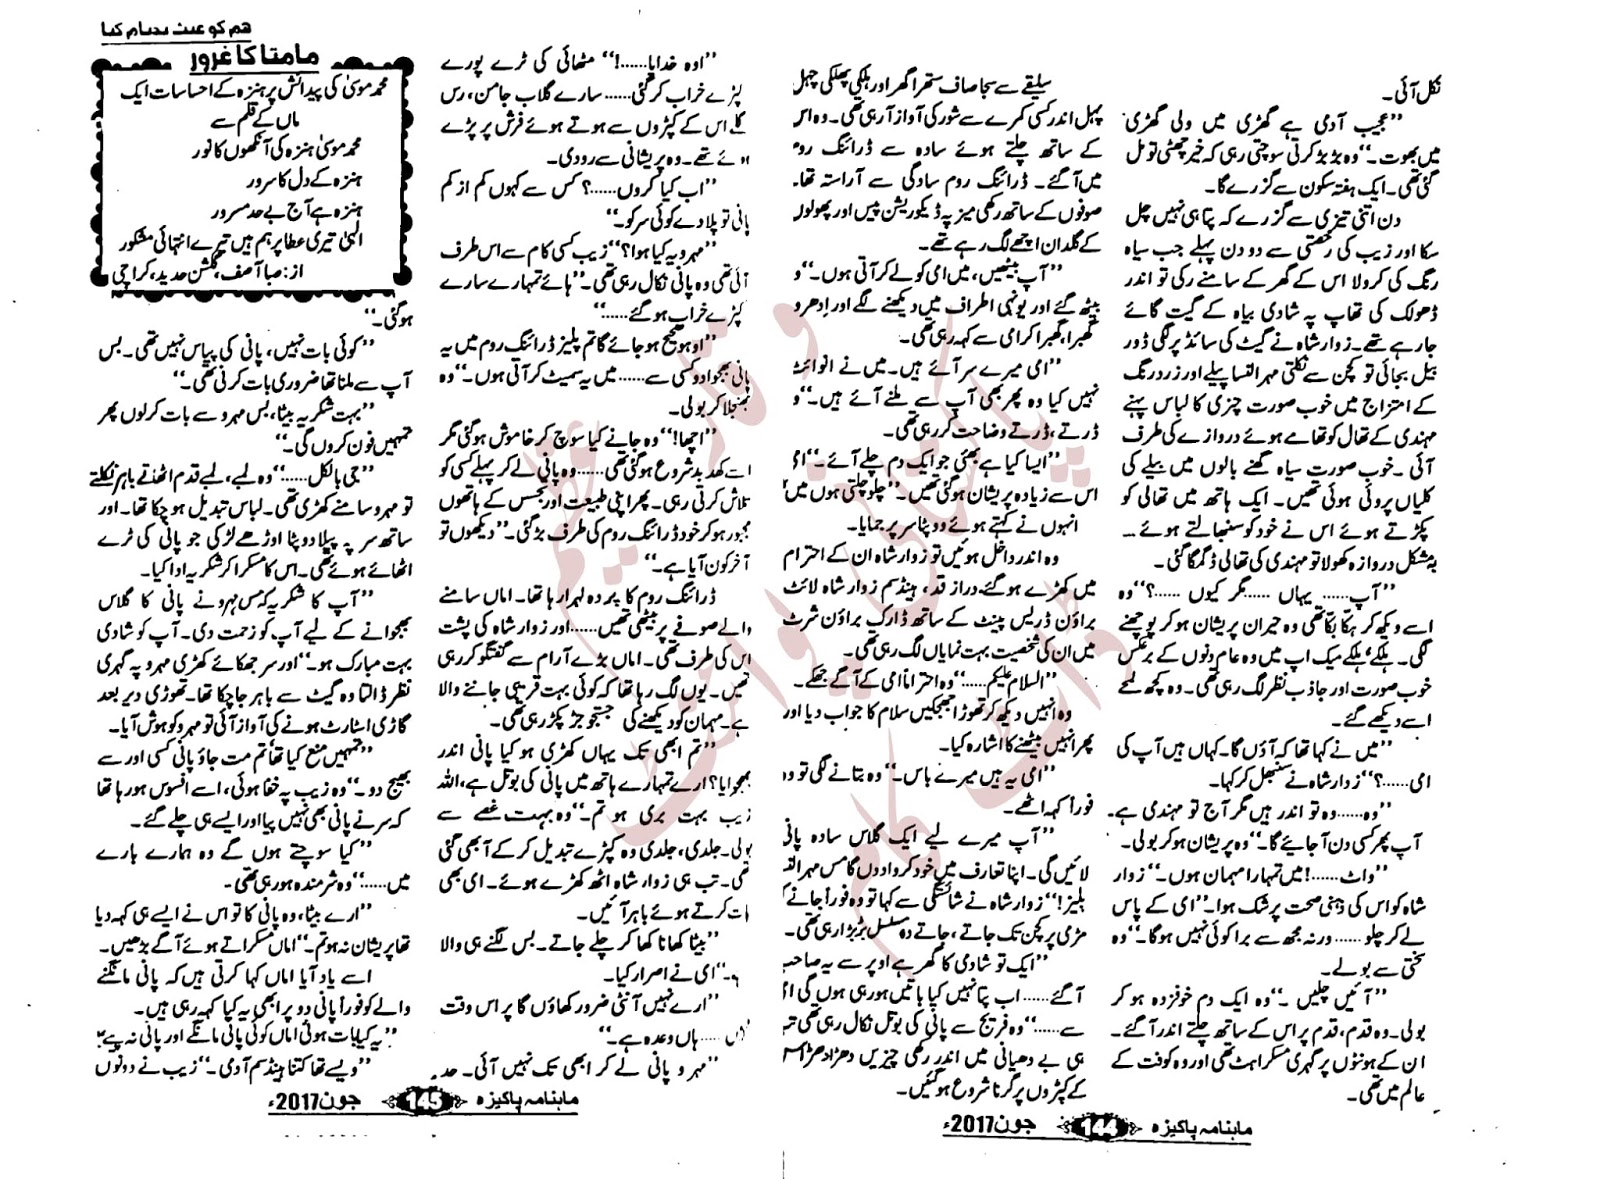 نکل آئی۔
’’عجیب آدمی ہے گھڑی میں ولی گھڑی
میں بھوت۔‘‘ وہ بڑبڑ کرتی سوچتی رہی کہ خیر چھٹی تو مل
گئی تھی۔ ایک ہفتہ سکون سے گزرے گا۔
دن اتنی تیزی سے گزرے کہ پتا ہی نہیں چل
سکا اور زیب کی رخصتی سے دو دن پہلے جب سیاہ
رنگ کی کرولا اس کے گھر کے سامنے رکی تو اندر
ڈھولک کی تھاپ پہ شادی بیاہ کے گیت گائے
جارہے تھے۔ زوار شاہ نے گیٹ کی سائڈ پر لگی ڈور
بیل بجائی تو کچن سے نکلتی مہر النسا پیلے اور زرد رنگ
کے امتزاج میں خوب صورت چنری کا لباس پہنے
مہندی کے تھال کو تھامے ہوئے دروازے کی طرف
آئی۔ خوب صورت سیاہ گھنے بالوں میں بیلے کی
کلیاں پروئی ہوئی تھیں۔ ایک ہاتھ میں تھالی کو
پکڑتے ہوئے اس نے خود کو سنبھالتے ہوئے ...
بہ مشکل دروازہ کھولا تو مہندی کی تھالی ڈگمگا گئی۔
’’آپ...... یہاں ...... مگر کیوں ......؟‘‘ وہ
اسے دیکھ کر ہکا بکا تھی وہ حیران پریشان ہو کر پوچھنے
لگی۔ ہلکے، ہلکے میک اپ میں وہ عام دنوں کے برعکس
خوب صورت اور جاذب نظر لگ رہی تھی۔ وہ کچھ لمحے
اسے دیکھے گئے۔
’’میں نے کہا تھا کہ آؤں گا۔ کہاں ہیں آپ کی
امی......؟‘‘ زوار شاہ نے سنبھل کر کہا۔
’’وہ...... وہ تو اندر ہیں مگر آج تو مہندی ہے۔
آپ پھر کسی دن آجایئے گا۔‘‘ وہ پریشان ہو کر بولی۔
’’واٹ......! میں تمہارا مہمان ہوں۔‘‘ زوار
شاہ کو اس کی ذہنی صحت پر شک ہوا۔ ’’امی کے پاس
لے کر چلو...... ورنہ مجھ سے برا کوئی نہیں ہوگا۔‘‘ وہ
سختی سے بولے۔
’’آئیں چلیں۔‘‘ وہ ایک دم خوفزدہ ہو کر
بولی۔ وہ قدم، قدم پر اس کے ساتھ چلتے اندر آگئے۔
ان کے ہونٹوں پر گہری مسکراہٹ تھی اور وہ کوفت کے
عالم میں تھی۔
سلیقے سے سجا صاف ستھرا گھر اور ہلکی پھلکی چہل
پہل اندر کسی کمرے سے شور کی آواز آرہی تھی۔ وہ اس
کے ساتھ چلتے ہوئے سادہ سے ڈرائنگ روم
میں آگئے۔ ڈرائنگ روم سادگی سے آراستہ تھا۔
صوفوں کے ساتھ رکھی میز پہ ڈیکوریشن پیس اور پھولوں
کے گلدان اچھے لگ رہے تھے۔
’’آپ بیٹھیں، میں امی کو لے کر آتی ہوں۔‘‘ و
بیٹھ گئے اور یونہی اطراف میں دیکھنے لگے اور ادھر و
گھبرا، گھبرا کر امی سے کہہ رہی تھی۔
’’امی میرے سر آئے ہیں۔ میں نے انوائٹ
نہیں کیا وہ پھر بھی آپ سے ملنے آئے ہیں۔‘‘ و
ڈرتے، ڈرتے وضاحت کررہی تھی۔
’’ایسا کیا ہے بھئی جو ایک دم چلے آئے۔‘‘ ا
اس سے زیادہ پریشان ہوگئی تھیں۔ ’’چلو چلتی ہوں میں‘‘
انہوں نے کہتے ہوئے دوپٹا سر پر جمایا۔
وہ اندر داخل ہوئیں تو زوار شاہ ان کے احترام
میں کھڑے ہوگئے، دراز قد، ہینڈسم زوار شاہ لائٹ
براؤن ڈریس پینٹ کے ساتھ ڈارک براؤن شرٹ
میں ان کی شخصیت بہت نمایاں لگ رہی تھی۔
’’السلام علیکم......‘‘ وہ احتراماً امی کے آگے جھکے۔
وہ انہیں دیکھ کر تھوڑا جھجکیں سلام کا جواب دیا اور
پھر انہیں بیٹھنے کا اشارہ کیا۔
’’امی یہ ہیں میرے باس۔‘‘ وہ بتانے لگی تو وہ
فوراً کہہ اٹھے۔
’’آپ میرے لیے ایک گلاس سادہ پانی
لائیں گی۔ اپنا تعارف میں خود کروادوں گا مس مہر الن
پلیز!‘‘ زوار شاہ نے شائستگی سے کہا تو وہ فوراً جانے کو
مڑی پر کچن تک جاتے، جاتے وہ مسلسل بڑبڑا رہی تھی۔
’’ایک تو شادی کا گھر ہے اوپر سے یہ صاحب
آگئے...... اب پتا نہیں کیا باتیں ہورہی ہوں گی ا
سے......‘‘ وہ فریج سے پانی کی بوتل نکال رہی تھی تب
ہی بے دھیانی میں اندر رکھی چیزیں دھڑا دھڑ اس
کے کپڑوں پر گرنا شروع ہوگئیں۔
ماہنامہ پاکیزہ 144 جون 2017ء
’’اوہ خدایا......!‘‘ مٹھائی کی ٹرے پورے
کپڑے خراب کر گئی...... سارے گلاب جامن، رس
گلے اس کے کپڑوں سے ہوتے ہوئے فرش پر پڑے
ہوئے تھے۔ وہ پریشانی سے رودی۔
’’اب کیا کروں......؟ کس سے کہوں کم از کم
پانی تو پلادے کوئی سر کو۔‘‘
’’مہرو یہ کیا ہوا؟‘‘ زیب کسی کام سے اس طرف
آئی تھی وہ پانی نکال رہی تھی۔ ’’ہائے تمہارے سارے
کپڑے خراب ہوگئے......‘‘
’’اوہو صحیح ہوجائے گا تم پلیز ڈرائنگ روم میں یہ
پانی بھجوا دو کسی سے...... میں یہ سمیٹ کر آتی ہوں۔‘‘ وہ
جھنجلا کر بولی۔
’’اچھا!‘‘ وہ جانے کیا سوچ کر خاموش ہوگئی مگر
اسے کھد بد شروع ہوگئی تھی...... وہ پانی لے کر پہلے کسی کو
تلاش کرتی رہی۔ پھر اپنی طبیعت اور تجسس کے ہاتھوں
مجبور ہوکر خود ڈرائنگ روم کی طرف بڑگئی۔ ’’دیکھوں تو
آخر کون آیا ہے۔‘‘
ڈرائنگ روم کا پردہ لہرا رہا تھا۔ اماں سامنے
والے صوفے پر بیٹھی تھیں...... اور زوار شاہ کی پشت
اس کی طرف تھی۔ اماں بڑے آرام سے گفتگو کررہی
تھیں۔ یوں لگ رہا تھا کہ کوئی بہت قریبی جاننے والا
ہے۔ مہمان کو دیکھنے کی جستجو جڑ پکڑ رہی تھی۔
’’تم ابھی تک یہاں کھڑی ہو کیا پانی اندر
بھجوایا؟ ارے تمہارے ہاتھ میں پانی کی بوتل ہے، اللہ
زیب بہت بری ہو تم۔‘‘ وہ بہت غصے سے
بولی۔ جلدی، جلدی وہ کپڑے تبدیل کرکے آبھی گئی
تھی۔ تب ہی زوار شاہ اٹھ کھڑے ہوئے۔ امی بھی
بات کرتے ہوئے باہر آئیں۔
’’بیٹا کھانا کھا کر چلے جاتے۔ بس لگنے ہی والا
ہے۔‘‘ امی نے اصرار کیا۔
’’ارے نہیں آنٹی ضرور کھاؤں گا پر اس وقت
نہیں...... ہاں وعدہ ہے۔‘‘
مہرو پانی لے کر ابھی تک نہیں آئی۔ حد
ہم کو عبث بدنام کیا
مامتا کا غرور
محمد موسیٰ کی پیدائش پر ہنزہ کے احساسات ایک
ماں کے قلم سے
محمد موسیٰ ہنزہ کی آنکھوں کا نور
ہنزہ کے دل کا سرور
ہنزہ ہے آج بے حد مسرور
الٰہی تیری عطا پر ہم ہیں تیرے انتہائی مشکور
از: صبا آصف، گلشن حدید، کراچی
ہوگئی۔‘‘
’’کوئی بات نہیں، پانی کی پیاس نہیں تھی۔ بس
آپ سے ملنا تھا ضروری بات کرنی تھی۔‘‘
’’بہت شکریہ بیٹا، بس مہرو سے بات کرلوں پھر
تمہیں فون کروں گی۔‘‘
’’جی بالکل......‘‘ وہ لمبے، لمبے قدم اٹھاتے باہر نکلتے
تو مہرو سامنے کھڑی تھی۔ لباس تبدیل ہوچکا تھا۔ اور
ساتھ سر پہ پیلا دوپٹا اوڑھے لڑکی جو پانی کی ٹرے
اٹھائے ہوئے تھی۔ اس کا مسکرا کر شکریہ ادا کیا۔
’’آپ کا شکریہ کہ مس مہرو نے پانی کا گلاس
بھجوانے کے لیے آپ کو زحمت دی۔ آپ کو شادی
بہت مبارک ہو۔‘‘ اور سر جھکائے کھڑی مہرو پہ گہری
نظر ڈالتا وہ گیٹ سے باہر جاچکا تھا۔ تھوڑی دیر بعد
گاڑی اسٹارٹ ہونے کی آواز آئی تو مہرو کو ہوش آیا۔
’’تمہیں منع کیا تھا تم مت جاؤ پانی کسی اور سے
بھیج دو۔‘‘ وہ زیب پہ خفا ہوئی، اسے افسوس ہورہا تھا
کہ سر نے پانی بھی نہیں پیا اور ایسے ہی چلے گئے۔
’’کیا سوچتے ہوں گے وہ ہمارے بارے
میں......‘‘ وہ شرمندہ ہورہی تھی۔
’’ارے بیٹا، وہ پانی کا تو اس نے ایسے ہی کہہ دیا
تھا پریشان نہ ہو تم۔‘‘ اماں مسکراتے ہوئے آگے بڑھیں۔
اسے یاد آیا اماں کہا کرتی ہیں کہ پانی مانگنے
والے کو فوراً پانی دو پر ابھی یہ کیا کہہ رہی ہیں۔
’’یہ کیا بات ہوئی اماں کوئی پانی مانگے اور پانی نہ پیے؟‘‘
’’ویسے تھا کتنا ہینڈسم آدمی۔‘‘ زیب نے دونوں
ماہنامہ پاکیزہ 145 جون 2017ء
پاکستانی پوائنٹ
ڈاٹ کام